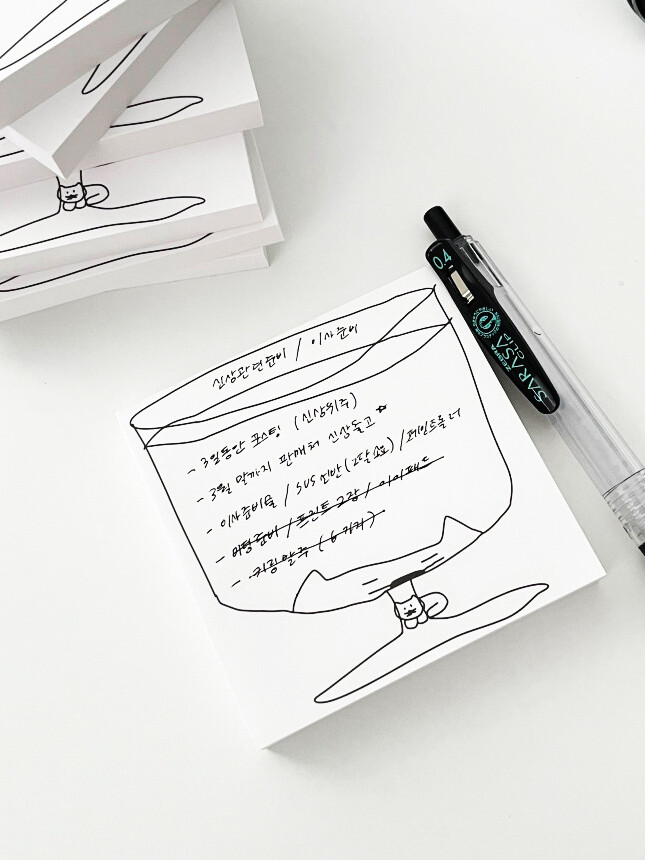 신상관련준비 / 이사준비
- 3일동안 포스팅 (신상위주)
- 3월 말까지 판매처 신상돌고
- 이사준비물 / SUS선반(2단소요) / 페인트롤러
- 미팅준비 / 프린트 교장 / 아이패드
- 키링발주 (6가지)
0.4
ZEBRA
SARASA
CLIP